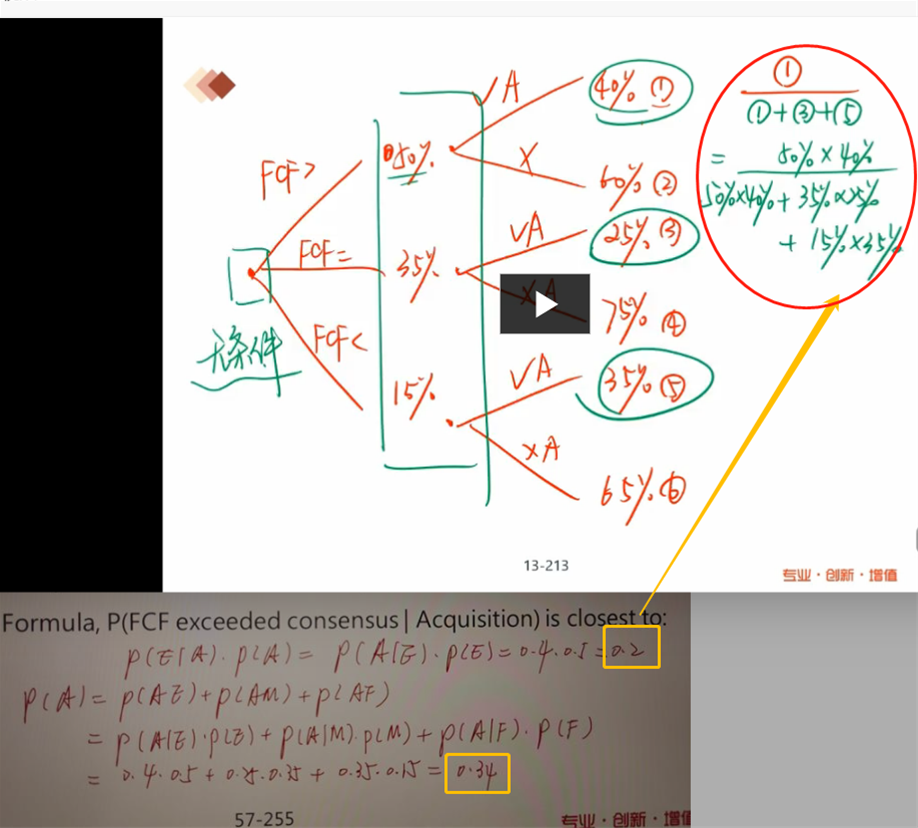 FCF>
FCF=
FCF<
无条件
50%
35%
15%
√A
40% ①
X
60% ②
√A
25% ③
XA
75% ④
√A
35% ⑤
XA
65% ⑥
①
①+③+⑤
= 50%×40%
50%×40%+35%×25%
+15%×35%
13-213
专业·创新·增值
Formula, P(FCF exceeded consensus | Acquisition) is closest to:
P(E|A)·P(A) = P(A|E)·P(E) = 0.4·0.5 = 0.2
P(A) = P(AE)+P(AM)+P(AF)
= P(A|E)·P(E)+P(A|M)·P(M)+P(A|F)·P(F)
= 0.4·0.5+0.25·0.35+0.35·0.15 = 0.34
57-255
专业·创新·增值